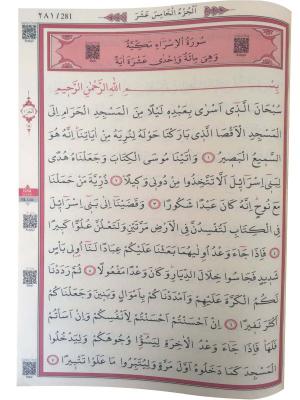 ٢٨١/281
اَلْجُزْءُ الْخَامِسَ عَشَرَ
سُورَةُ الْاِسْرَاءِ مَكِّيَّةٌ
وَهِيَ مِائَةٌ وَاِحْدٰى عَشْرَةَ اٰيَةً
بِسْمِ اللّٰهِ الرَّحْمٰنِ الرَّحٖيمِ
سُبْحَانَ الَّذٖى اَسْرٰى بِعَبْدِهٖ لَيْلًا مِنَ الْمَسْجِدِ الْحَرَامِ اِلَى
الْمَسْجِدِ الْاَقْصَا الَّذٖى بَارَكْنَا حَوْلَهُ لِنُرِيَهُ مِنْ اٰيَاتِنَا اِنَّهُ هُوَ
السَّمٖيعُ الْبَصٖيرُ ١ وَاٰتَيْنَا مُوسَى الْكِتَابَ وَجَعَلْنَاهُ هُدًى
لِبَنٖى اِسْرَائٖلَ اَلَّا تَتَّخِذُوا مِنْ دُونٖى وَكٖيلًا ٢ ذُرِّيَّةَ مَنْ حَمَلْنَا
مَعَ نُوحٍ اِنَّهُ كَانَ عَبْدًا شَكُورًا ٣ وَقَضَيْنَا اِلٰى بَنٖى اِسْرَائٖلَ
فِى الْكِتَابِ لَتُفْسِدُنَّ فِى الْاَرْضِ مَرَّتَيْنِ وَلَتَعْلُنَّ عُلُوًّا كَبٖيرًا
٤ فَاِذَا جَاءَ وَعْدُ اُولٰيهُمَا بَعَثْنَا عَلَيْكُمْ عِبَادًا لَنَا اُولٖى بَاْسٍ
شَدٖيدٍ فَجَاسُوا خِلَالَ الدِّيَارِ وَكَانَ وَعْدًا مَفْعُولًا ٥ ثُمَّ رَدَدْنَا
لَكُمُ الْكَرَّةَ عَلَيْهِمْ وَاَمْدَدْنَاكُمْ بِاَمْوَالٍ وَبَنٖينَ وَجَعَلْنَاكُمْ
اَكْثَرَ نَفٖيرًا ٦ اِنْ اَحْسَنْتُمْ اَحْسَنْتُمْ لِاَنْفُسِكُمْ وَاِنْ اَسَاْتُمْ
فَلَهَا فَاِذَا جَاءَ وَعْدُ الْاٰخِرَةِ لِيَسُوؤُا وُجُوهَكُمْ وَلِيَدْخُلُوا
الْمَسْجِدَ كَمَا دَخَلُوهُ اَوَّلَ مَرَّةٍ وَلِيُتَبِّرُوا مَا عَلَوْا تَتْبٖيرًا ٧